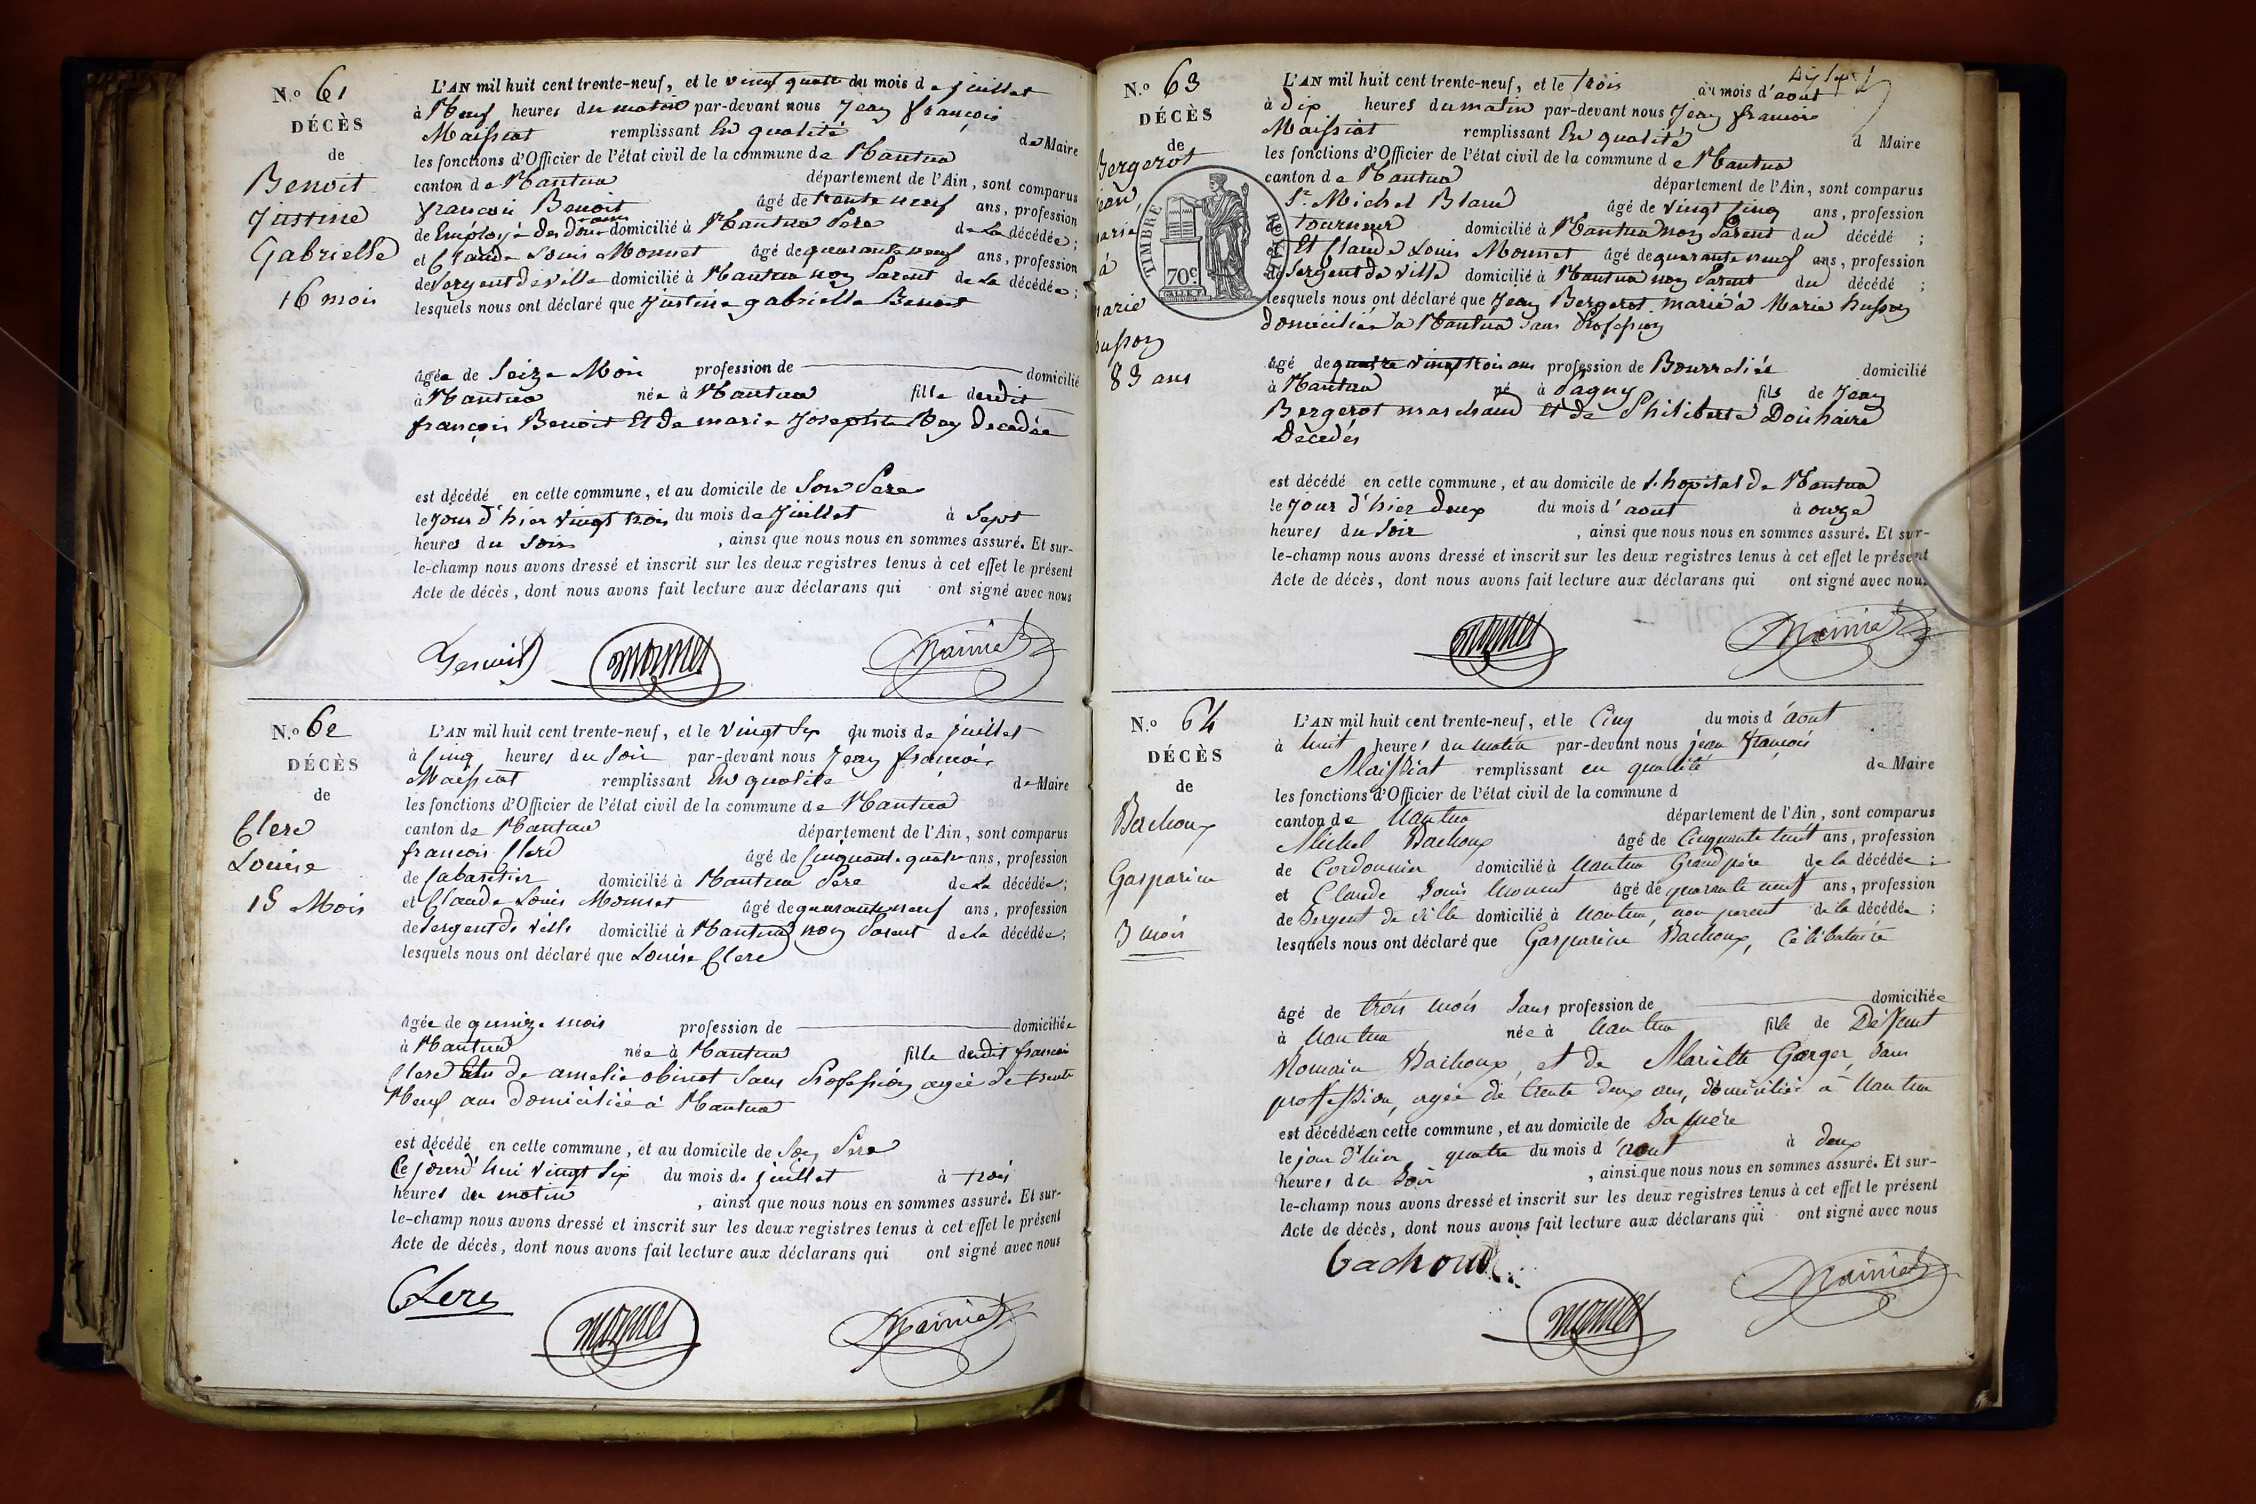 N.o 61
DÉCÈS
de
Benoit
Justine
Gabrielle
16 mois
L'AN mil huit cent trente-neuf, et le vingt quatre du mois de juillet
à Neuf heures du matin par-devant nous Jean françois
Maissiat remplissant En qualité de Maire
les fonctions d'Officier de l'état civil de la commune de Nantua
canton de Nantua département de l'Ain, sont comparus
françois Benoit âgé de trente neuf ans, profession
de Employé des douanes domicilié à Nantua Père de La décédée;
et Claude Louis Monnet âgé de quarante neuf ans, profession
de Sergent de ville domicilié à Nantua non Parent de La décédée;
lesquels nous ont déclaré que Justine gabrielle Benoit
âgée de Seize Mois profession de domicilié
à Nantua née à Nantua fille dudit
françois Benoit Et de marie Josephte Rey decedée
est décédé en cette commune, et au domicile de Son Pere
le Jour d'hier vingt trois du mois de Juillet à Sept
heures du Soir, ainsi que nous nous en sommes assuré. Et sur-
le-champ nous avons dressé et inscrit sur les deux registres tenus à cet effet le présent
Acte de décès, dont nous avons fait lecture aux déclarans qui ont signé avec nous
Benoit Monnet Maissiat
N.o 62
DÉCÈS
de
Clerc
Louise
15 Mois
L'AN mil huit cent trente-neuf, et le vingt Six du mois de juillet
à Cinq heures du Soir par-devant nous Jean françois
Maissiat remplissant En qualité de Maire
les fonctions d'Officier de l'état civil de la commune de Nantua
canton de Nantua département de l'Ain, sont comparus
francois Clerc âgé de Cinquante quatre ans, profession
de Cabaretier domicilié à Nantua Père de La décédée;
et Claude Louis Monnet âgé de quarante neuf ans, profession
de Sergent de ville domicilié à Nantua non Parent de la décédée;
lesquels nous ont déclaré que Louise Clerc
âgée de quinze mois profession de domiciliée
à Nantua née à Nantua fille dudit francois
Clerc Et de amelie obinet Sans Profession agée de trente
Neuf ans domiciliée à Nantua
est décédé en cette commune, et au domicile de Son Père
Ce jourd'hui vingt Six du mois de juillet à trois
heures du matin, ainsi que nous nous en sommes assuré. Et sur-
le-champ nous avons dressé et inscrit sur les deux registres tenus à cet effet le présent
Acte de décès, dont nous avons fait lecture aux déclarans qui ont signé avec nous
Clerc Monnet Maissiat
N.o 63
DÉCÈS
de
Bergerot
Jean,
marié
à
marie
husson
83 ans
TIMBRE ROYAL
70c
L'AN mil huit cent trente-neuf, et le trois du mois d'aout
à Dix heures du matin par-devant nous Jean francois
Maissiat remplissant En qualité d Maire
les fonctions d'Officier de l'état civil de la commune de Nantua
canton de Nantua département de l'Ain, sont comparus
Sr Michel Bland âgé de vingt Cinq ans, profession
de tourneur domicilié à Nantua non Parent du décédé;
et Claude Louis Monnet âgé de quarante neuf ans, profession
de Sergent de ville domicilié à Nantua non Parent du décédé;
lesquels nous ont déclaré que Jean Bergerot marié à Marie husson
domiciliée à Nantua sans Profession
âgé de quatre vingt trois ans profession de Bourrelier domicilié
à Nantua né à Pagny fils de Jean
Bergerot marchand Et de Philiberte Douhaire
Décedés
est décédé en cette commune, et au domicile de l'hopital de Nantua
le Jour d'hier deux du mois d'aout à onze
heures du Soir, ainsi que nous nous en sommes assuré. Et sur-
le-champ nous avons dressé et inscrit sur les deux registres tenus à cet effet le présent
Acte de décès, dont nous avons fait lecture aux déclarans qui ont signé avec nous
Monnet Maissiat
N.o 64
DÉCÈS
de
Bachoux
Gasparine
3 mois
L'AN mil huit cent trente-neuf, et le Cinq du mois d'aout
à huit heures du matin par-devant nous jean françois
Maissiat remplissant en qualité de Maire
les fonctions d'Officier de l'état civil de la commune d
canton de Nantua département de l'Ain, sont comparus
Michel Bachoux âgé de Cinquante huit ans, profession
de Cordonnier domicilié à Nantua Grand père de la décédée;
et Claude Louis Monnet âgé de quarante neuf ans, profession
de Sergent de ville domicilié à Nantua, non parent de la décédée;
lesquels nous ont déclaré que Gasparine Bachoux, Célibataire
âgé de trois mois Sans profession de domiciliée
à Nantua née à Nantua fille de Déffunt
Romain Bachoux, et de Mariette Gorger, Sans
proffession, agée de trente deux ans, domiciliée à Nantua
est décédée en cette commune, et au domicile de Sa mère
le jour d'hier quatre du mois d'aout à deux
heures du Soir, ainsi que nous nous en sommes assuré. Et sur-
le-champ nous avons dressé et inscrit sur les deux registres tenus à cet effet le présent
Acte de décès, dont nous avons fait lecture aux déclarans qui ont signé avec nous
bachoux Monnet Maissiat